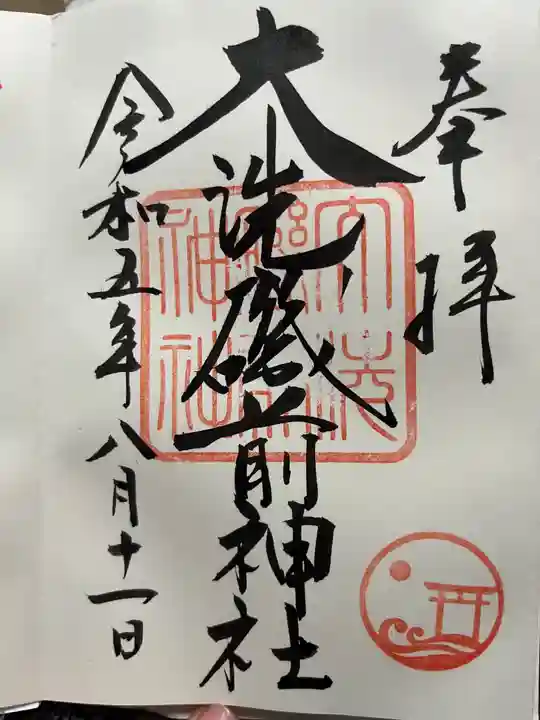 奉拝
大洗磯前神社
令和五年八月十一日
大洗
磯前
神社